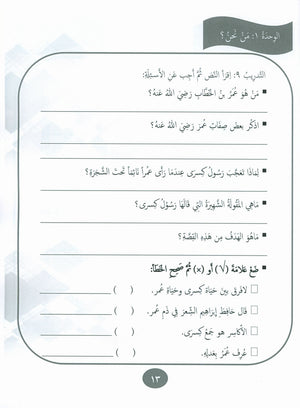 الوحدة ١: مَنْ نَحْنُ ؟
التدريب ٩: اِقرَأ النَّص ثُمَّ أَجِب عَنِ الأَسئِلَةِ:
مَنْ هُوَ عُمَرُ بنُ الخَطَّابِ رَضِيَ اللهُ عَنهُ؟
اذكُر بعض صِفَاتِ عُمَرَ رَضِيَ اللهُ عَنهُ؟
لِمَاذَا تَعَجَّبَ رَسُولُ كِسرَى عِندَمَا رَأى عُمَراً نَائِماً تَحتَ الشَّجَرَةِ؟
مَاهِي المَقُولَةُ الشَّهِيرَةُ الَّتِي قَالَهَا رَسُولُ كِسرَى؟
مَاهُوَ الهَدَفُ مِن هَذِهِ القِصَّةِ؟
ضَعْ عَلَامَةَ (√) أو (×) ثُمَّ صَحِحِ الخَطَأَ:
لافَرق بَينَ حَيَاة كِسرَى وحَيَاة عُمر. ( )
قَالَ حَافِظ إبرَاهِيم الشِّعرَ فِي ذَم عُمر. ( )
الأَكَاسِر هو جَمعُ كِسرَى. ( )
عُرِفَ عُمَر بِعَدلِه. ( )
١٣